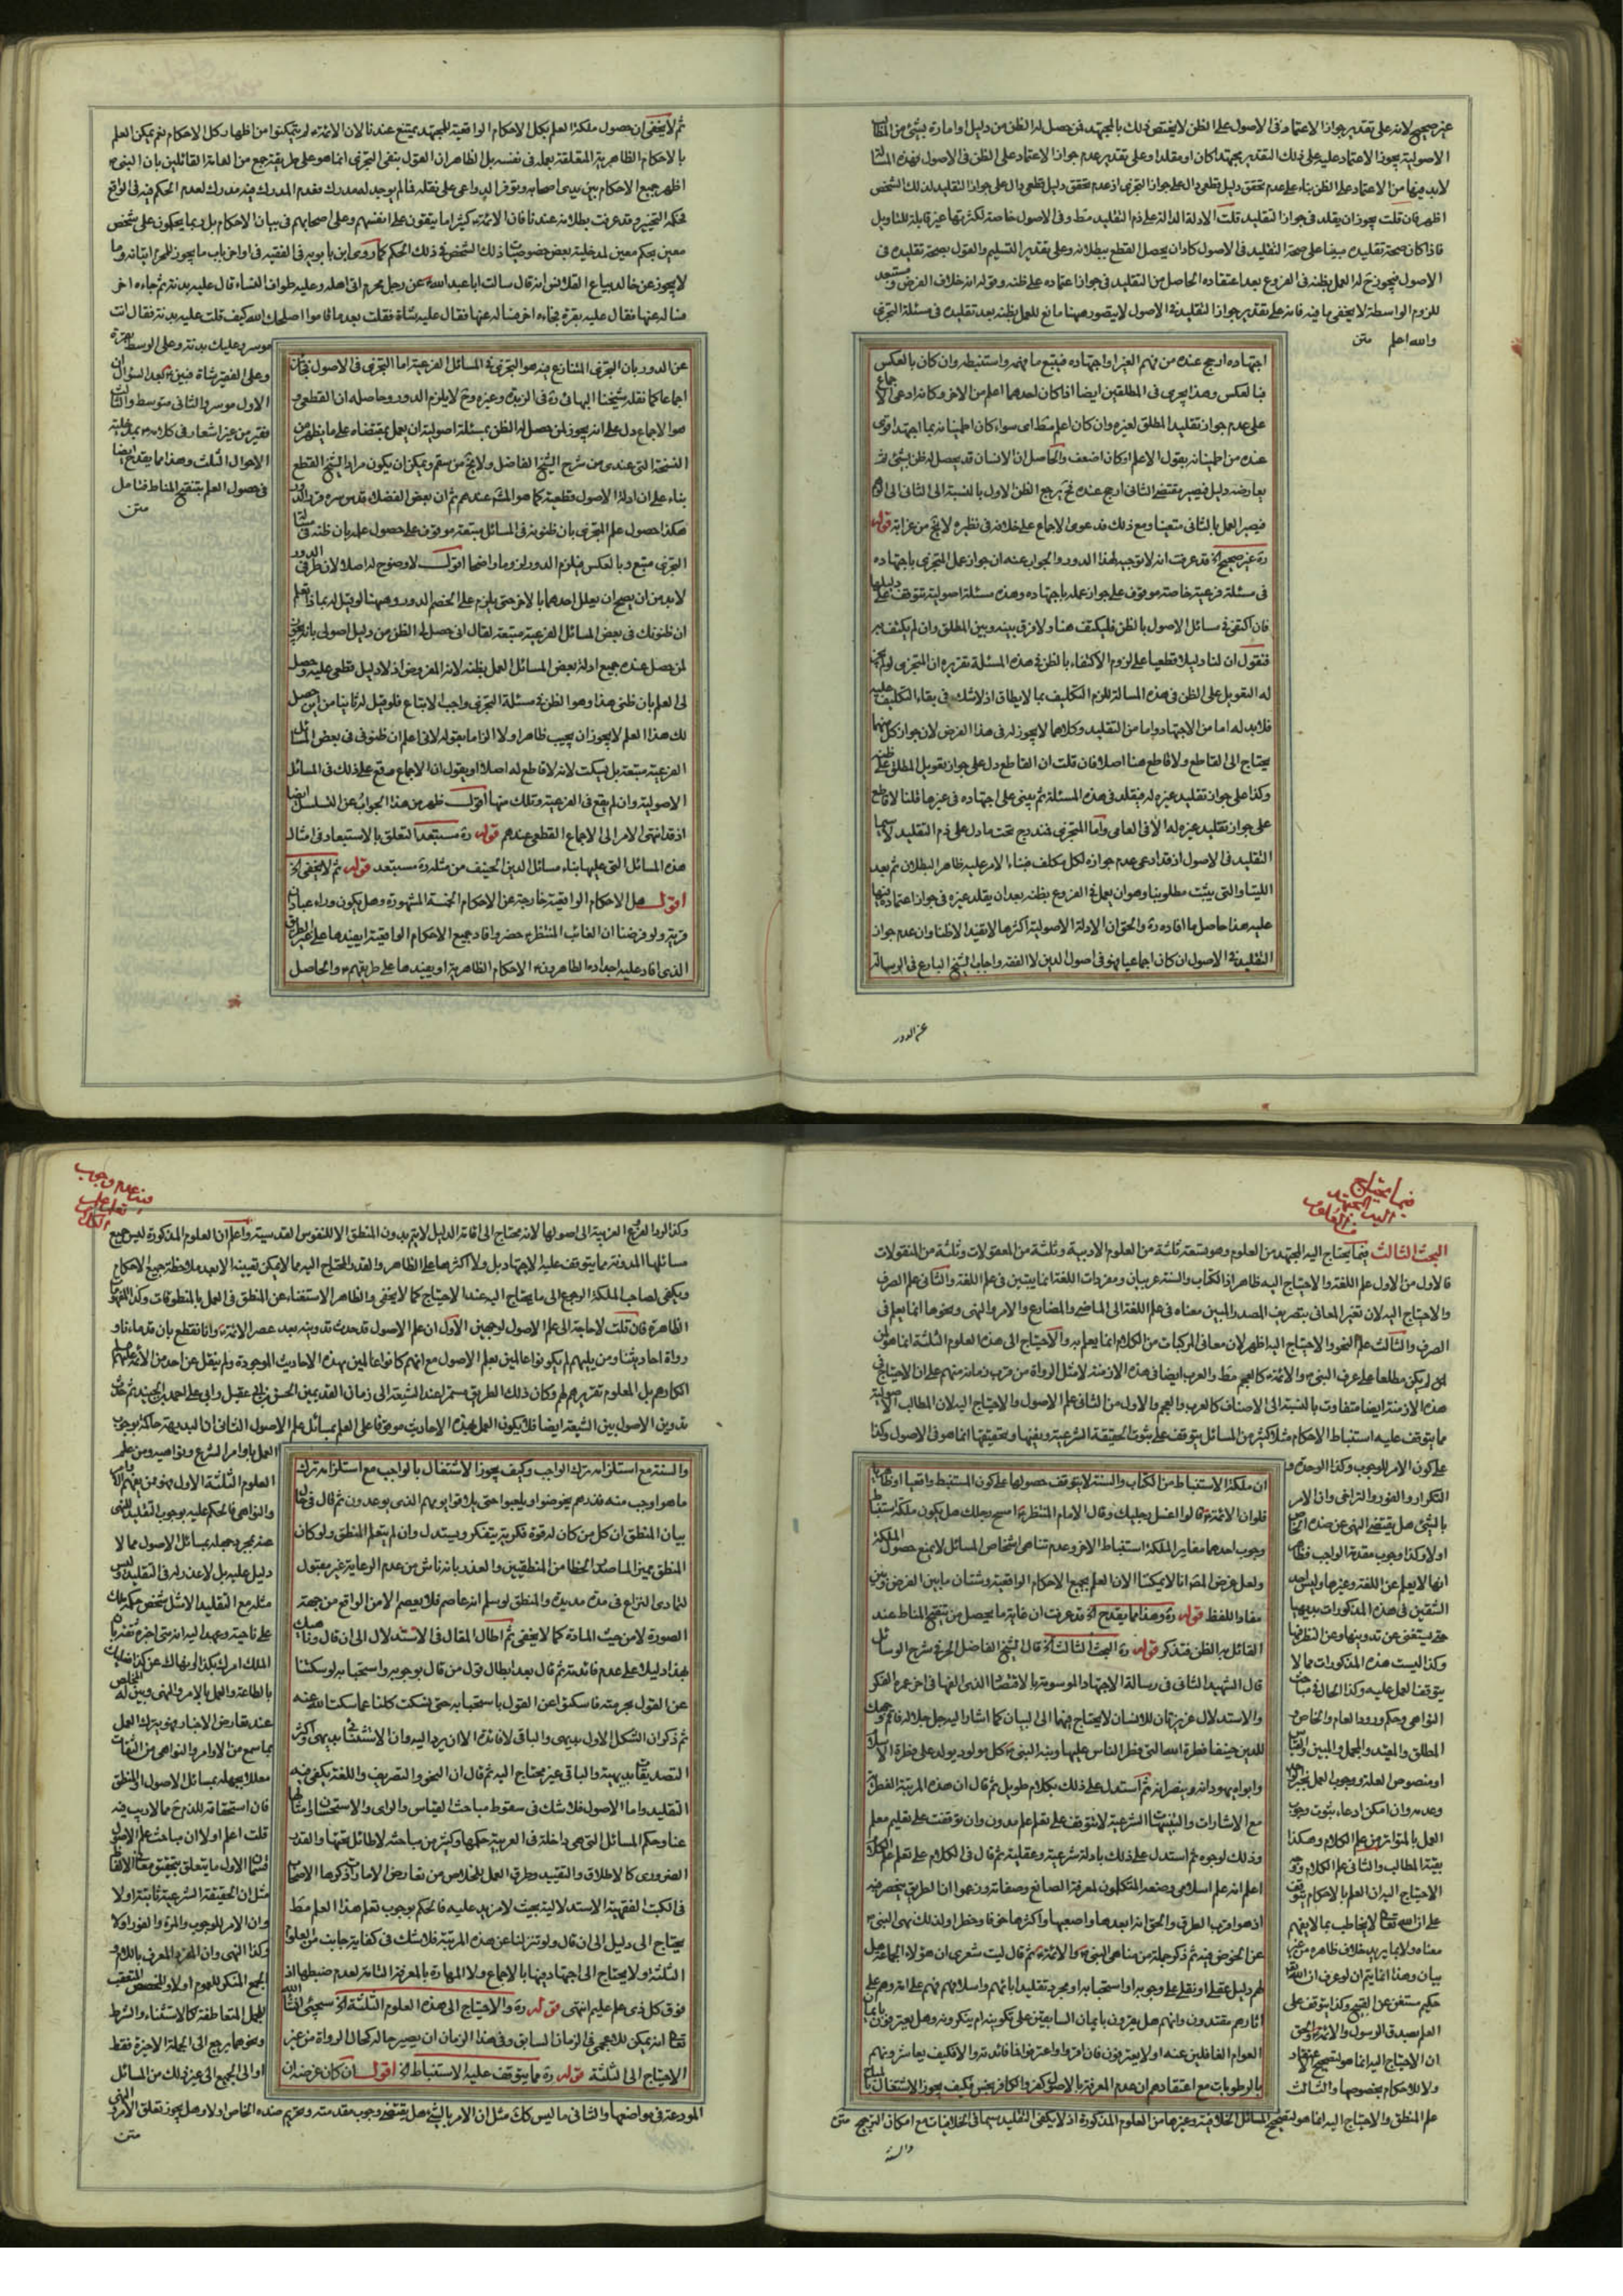 غير صحيح لانه على تقدير جواز الاعتماد فى الاصول على الظن لا يختص ذلك بالمجتهد فمن حصل له الظن من دليل او امارة بشئ من المطالب
الاصولية يجوز الاعتماد عليه على ذلك التقدير مجتهدا كان او مقلدا وعلى تقدير عدم جواز الاعتماد على الظن فى الاصول فهذه المسئلة
لابد فيها من الاعتماد على الظن بناء على عدم تحقق دليل قطعى دال على جواز التجزى اذ عدم تحقق دليل قطعى دال على جواز التقليد لذلك الشخص
اظهر فان قلت يجوز ان يقلد فى جواز التقليد قلت الادلة الدالة على ذم التقليد مط وفى الاصول خاصة لكثرتها غير قابلة للتاويل
فاذا كان صحة تقليده مبنيا على صحة التقليد فى الاصول كاد ان يحصل القطع ببطلانه وعلى تقدير التسليم والقول بصحة تقليده فى
الاصول فيجوز ح له العمل بظنه فى الفروع بعد اعتقاده الحاصل من التقليد فى جواز اعتماده على ظنه وقوله انه خلاف الفرض ومستبعد
للزوم الواسطة لا يخفى ما فيه فانه على تقدير جواز التقليد فى الاصول لا يتصور هيهنا مانع للعمل بظنه بعد تقليده فى مسئلة التجزى
والله اعلم متن
اجتهاده ارجح عنده من فهم الغير او اجتهاده فيتبع ما فهمه واستنبطه وان كان بالعكس
فبالعكس وهذا يجرى فى المطلقين ايضا اذا كان احدهما اعلم من الاخر وكانه ادعى الاجماع
على عدم جواز تقليد المطلق لغيره وان كان اعلم مط اى سواء كان اطمينانه بما اجتهد اقوى
عنده من اطمينانه بقول الاعلم او كان اضعف والحاصل ان الانسان قد يحصل له ظن بشئ ثم
يعارضه دليل فيصير مقتضى الثانى ارجح عنده فح يرجع الظن الاول بالنسبة الى الثانى الى الوهم
فيصير العمل بالثانى متعينا ومع ذلك فدعوى الاجماع على خلافه فى نظيره لا يخ من غرابة قوله
ره غير صحيح الخ قد عرفت انه لا توجيه لهذا الدور والجواب عنه ان جواز عمل المتجزى باجتهاده
فى مسئلة فرعية خاصة موقوف على جواز عمله باجتهاده وهذه مسئلة اصولية يتوقف على دليلها
فان اكتفى فى مسائل الاصول بالظن فليكتف هنا ولا فرق بينه وبين المطلق وان لم يكتف به
فنقول ان لنا دليلا قطعيا على لزوم الاكتفاء بالظن فى هذه المسئلة تقريره ان المتجزى لو لم يجز
له التعويل على الظن فى هذه المسالة للزم التكليف بما لا يطاق اذ لا شك فى بقاء التكليف عليه
فلابد له اما من الاجتهاد واما من التقليد وكلاهما لا يجوز له فى هذا الفرض لان جواز كل منهما
يحتاج الى القاطع ولا قاطع هنا اصلا فان قلت ان القاطع دل على جواز تعويل المطلق على ظنه
وكذا على جواز تقليد غيره له فيقلد فى هذه المسئلة ثم يبنى على اجتهاده فى غيرها قلنا لا قاطع
على جواز تقليد غيره له الا فى العامى واما المتجزى فيندرج تحت ما دل على ذم التقليد لا سيما
التقليد فى الاصول اذ قد ادعى عدم جوازه لكل مكلف فبناء الامر عليه ظاهر البطلان ثم بعد
اللتيا والتى يثبت مطلوبنا وهو ان يعمل فى الفروع بظنه بعد ان يقلد غيره فى جواز اعتماده فيها
عليه هذا حاصل ما افاده ره والحق ان الادلة الاصولية اكثرها لا تفيد الا ظنا وان عدم جواز
التقليد فى الاصول ان كان اجماعيا فهو فى اصول الدين لا الفقه واجاب الشيخ البارع فى الرسالة
عن الدور
ثم لا يخفى ان حصول ملكة العلم بكل الاحكام الواقعية للمجتهد يمتنع عندنا لان الائمة ع لم يتمكنوا من اظهار كل الاحكام نعم يمكن العلم
بالاحكام الظاهرية المتعلقة بعمله فى نفسه بل الظاهر ان القول بنفى التجزى انما هو على طريقة جمع من العامة القائلين بان النبى ص
اظهر جميع الاحكام بين يدى اصحابه وتوفر الدواعى على نقله فما لم يوجد له مدرك فعدم المدرك فيه مدرك لعدم الحكم فيه فى الواقع
فحكمه التخيير وقد عرفت بطلانه عندنا فان الائمة ع كثيرا ما يتقون على انفسهم وعلى اصحابهم فى بيان الاحكام بل ربما يحكمون على شخص
معين بحكم معين لمدخلية بعض خصوصيات ذلك الشخص فى ذلك الحكم كما روى ابن بابويه فى الفقيه فى اواخر باب ما يجوز للمحرم اتيانه وما
لا يجوز عن خالد بياع القلانس انه قال سالت ابا عبد الله ع عن رجل محرم اتى اهله وعليه طواف النساء قال عليه بدنة ثم جاءه اخر
فساله عنها فقال عليه بقرة فجاءه اخر فساله عنها فقال عليه شاة فقلت بعد ما قاموا اصلحك الله كيف قلت عليه بدنة فقال انت
موسر وعليك بدنة وعلى الوسط بقرة
وعلى الفقير شاة فبين ع بعد السؤال ان
الاول موسر والثانى متوسط والثالث
فقير من غير اشعار فى كلامه ع بمدخلية
الاحوال الثلث وهذا مما يقدح ايضا
فى حصول العلم بتنقيح المناط فتامل
متن
عن الدور بان التجزى المتنازع فيه هو التجزى فى المسائل الفرعية اما التجزى فى الاصول فجائز
اجماعا كما نقله شيخنا البهائى ره فى الزبدة وغيره وح لا يلزم الدور وحاصله ان القطعى
هو الاجماع دل على انه يجوز لمن حصل له الظن بمسئلة اصولية ان يعمل بمقتضاه على ما يظهر من
النسخة التى عندى من شرح الشيخ الفاضل ولا يخ من سقم ويمكن ان يكون مراد الشيخ القطع
بناء على ان ادلة الاصول قطعية كما هو المشهور عندهم ثم ان بعض الفضلاء قدس سره قرر الدور
هكذا حصول علم المتجزى بان ظنونه فى المسائل متبعة موقوف على حصول علمه بان ظنه فى مسئلة
التجزى متبع وبالعكس فيلزم الدور لزوما واضحا اقول لا وضوح له اصلا لان طرفى الدور
لابد من ان يصح ان يعلل احدهما بالاخر حتى يلزم على الخصم الدور وهيهنا لو قيل له بماذا تعلم
ان ظنونك فى بعض المسائل الفرعية متبعة لقال انى حصل لى الظن من دليل اصولى بانه يجوز
لمن حصل عنده جميع ادلة بعض المسائل العمل بظنه لانه المفروض اذ لا دليل قطعى عليه وحصل
لى العلم بان ظنى هذا وهو الظن فى مسئلة التجزى واجب الاتباع فلو قيل له ثانيا من اين حصل
لك هذا العلم لا يجوز ان يجيب ظاهرا ولا الزاما بقوله لانى اعلم ان ظنونى فى بعض المسائل
الفرعية متبعة بل يسكت لانه لا قاطع له اصلا او يقول ان الاجماع وقع على ذلك فى المسائل
الاصولية وان لم يقع فى الفرعية وتلك منها اقول ظهر من هذا الجواب عن التسلسل ايضا
اذ قد انتهى الامر الى الاجماع القطعى عندهم قوله ره مستبعد التعلق بالاستبعاد فى امثال
هذه المسائل التى عليها بناء مسائل الدين الحنيف من مثله ره مستبعد قوله ثم لا يخفى الخ
اقول هل الاحكام الواقعية خارجة عن الاحكام الخمسة المشهورة وهل يكون وراء عبادان
قرية ولو فرضنا ان الغائب المنتظر ع حضر وافاد جميع الاحكام الواقعية ايفيدها على غير الطريق
الذى افاد عليه اجداده الطاهرون ع الاحكام الظاهرية او يفيدها على طريقهم ع والحاصل
فيما يحتاج
اليه المجتهد
البحث الثالث فيما يحتاج اليه المجتهد من العلوم وهو تسعة ثلثة من العلوم الادبية وثلثة من المعقولات وثلثة من المنقولات
فالاول من الاول علم اللغة والاحتياج اليه ظاهر اذ الكتاب والسنة عربيان ومفردات اللغة انما يتبين فى علم اللغة والثانى علم الصرف
والاحتياج اليه لان تغير المعانى بتصريف المصدر المبين معناه فى علم اللغة الى الماضى والمضارع والامر والنهى ونحوها انما يعلم فى
الصرف والثالث علم النحو والاحتياج اليه اظهر لان معانى المركبات من الكلام انما يعلم به والاحتياج الى هذه العلوم الثلثة انما هو لمن
لم يكن مطلعا على عرف النبى ص والائمة ع كالعجم مط والعرب ايضا فى هذه الازمنة لا مثل الرواة من قرب زمانه منهم على ان الاحتياج فى
هذه الازمنة ايضا متفاوت بالنسبة الى الاصناف كالعرب والعجم والاول من الثانى علم الاصول والاحتياج اليه لان المطالب الاصولية
مما يتوقف عليه استنباط الاحكام مثلا كثير من المسائل يتوقف على ثبوت الحقيقة الشرعية ونفيها وتحقيقها انما هو فى الاصول وكذا
على كون الامر للوجوب وكذا الوحدة و
التكرار والفور والتراخى وان الامر
بالشئ هل يقتضى النهى عن ضده الخاص
اولا وكذا وجوب مقدمة الواجب فظاهر
انها لا يعلم عن اللغة وغيرها وليس احد
الشقين فى هذه المذكورات بديهيا
حتى يستغنى عن تدوينها وعن النظر فيها
وكذا ليست هذه المذكورات مما لا
يتوقف العمل عليه وكذا الحال فى مباحث
النواهى وحكم ورود العام والخاص و
المطلق والمقيد والمجمل والمبين
او منصوص العلة ووجوب العمل بخبر الواحد
وعدمه وان امكن ادعاء ثبوت وجوب
العمل بالمتواتر من علم الكلام وهكذا
بقية المطالب والثانى علم الكلام ووجه
الاحتياج اليه ان العلم بالاحكام يتوقف
على ان الله تعالى لا يخاطب بما لا يفهم
معناه ولا بما يريد خلاف ظاهره من غير
بيان وهذا انما يتم ان لو عرف ان الله تعالى
حكيم مستغن عن القبيح وكذا يتوقف على
العلم بصدق الرسول والائمة ع والحق
ان الاحتياج اليه انما هو لتصحيح الاعتقاد
ولا للاحكام بخصوصها والثالث
علم المنطق والاحتياج اليه انما هو لتصحيح المسائل الخلافية وغيرها من العلوم المذكورة اذ لا يكفى التقليد سيما فى الخلافيات مع امكان الترجيح متن
ان ملكة الاستنباط من الكتاب والسنة لا يتوقف حصولها على كون المستنبط واقعيا او ظاهريا
فلو ان الائمة ع قالوا اغسل رجليك وقال الامام المنتظر ع امسح رجلك هل يكون ملكة استنباط
وجوب احدهما مغاير الملكة استنباط الاخر وعدم تناهى اشخاص المسائل لا يمنع حصول الملكة
ولعل غرض المص انا لا يمكننا الان العلم بجميع الاحكام الواقعية وشتان ما بين الغرض وبين
مفاد اللفظ قوله ره وهذا مما يقدح الخ قد عرفت ان غاية ما يحصل من تنقيح المناط عند
القائل به الظن فتذكر قوله ره البحث الثالث الخ قال الشيخ الفاضل الحر فى شرح الوسائل
قال الشهيد الثانى فى رسالة الاجتهاد الموسومة بالاقتصاد الذى الفها فى اخر عمره الفكر
والاستدلال غريزتان للانسان لا يحتاج فيها الى البيان كما اشار اليه جل جلاله فاقم وجهك
للدين حنيفا فطرة الله التى فطر الناس عليها ونبه النبى ص كل مولود يولد على فطرة الاسلام
وابواه يهودانه وينصرانه ثم استدل على ذلك بكلام طويل ثم قال ان هذه المرتبة الفطرية
مع الاشارات والتنبيهات الشرعية لا تتوقف على تعلم علم مدون وان توقفت على تعليم معلم
وذلك لوجوه ثم استدل على ذلك بادلة شرعية وعقلية ثم قال فى الكلام على تعلم علم الكلام
اعلم انه علم اسلامى وضعه المتكلمون لمعرفة الصانع وصفاته وزعموا ان الطريق منحصر فيه
او هو اقرب الطرق والحق انه ابعدها واصعبها واكثرها خوفا وخطرا ولذلك نهى النبى ص
عن الخوض فيه ثم ذكر جملة من مناهى النبى ص والائمة ع ثم قال ليت شعرى ان هؤلاء الجماعة هل
لهم دليل عقلى او نقلى على وجوبه او استحبابه او مجرد تقليد ابائهم واسلافهم فهم على
اثارهم مقتدون وانهم هل يقرون بايمان السابقين على تكوينه ام ينكرونه وهل يعترفون بايمان
العوام الغافلين عنه او لا يعترفون فان اقروا واعترفوا فما فائدته والا فكيف يعاشرونهم
بالرطوبات مع اعتقادهم ان عدم المعرفة بالاصول كفر والكافر نجس فكيف يجوز الاشتغال بالمباح
والسنة
وكذا رد الفروع الغريبة الى اصولها لانه يحتاج الى اقامة الدليل لا يتم بدون المنطق الا للنفوس القدسية واعلم ان العلوم المذكورة ليس جميع
مسائلها المدونة مما يتوقف عليه الاجتهاد بل ولا اكثرها على الظاهر والقدر المحتاج اليه مما لا يمكن تعيينه الا بعد ملاحظة جميع الاحكام
ويكفى لصاحب الملكة الرجوع الى ما يحتاج اليه عند الاحتياج كما لا يخفى والظاهر الاستغناء عن المنطق فى العمل بالمنطوقات وكذا المفهومات
الظاهرة فان قلت لا حاجة الى علم الاصول لوجهين الاول ان علم الاصول قد حدث تدوينه بعد عصر الائمة ع وانا نقطع بان قدماءنا و
رواة احاديثنا ومن يليهم لم يكونوا عالمين بعلم الاصول مع انهم كانوا عاملين بهذه الاحاديث الموجودة ولم ينقل عن احد من الائمة عليهم السلام
انكارهم بل المعلوم تقريرهم لهم وكان ذلك الطريق مستمرا عند الشيعة الى زمان القديمين الحسن بن ابى عقيل وابى على احمد بن الجنيد ثم حدث
تدوين الاصول بين الشيعة ايضا فلا يكون العمل بهذه الاحاديث موقوفا على العلم بمسائل علم الاصول الثانى ان البديهة حاكمة بوجوب
العمل باوامر الشرع ونواهيه ومن علم
العلوم الثلثة الاول فهو ممن يفهم الاوامر
والنواهى فالحكم عليه بوجوب التقليد المنهى
عنه بمجرد جهله بمسائل الاصول مما لا
دليل عليه بل لا عذر له فى التقليد وليس
مثله مع التقليد الا مثل شخص حكمه ملك
على ناحية وعهد اليه انه متى اخبره ثقة بان
الملك امرك بكذا او نهاك عن كذا فعليك
بالطاعة والعمل بالامر والنهى وبين له المخلص
عند تعارض الاخبار فهو يترك العمل
بما سمع من الاوامر والنواهى من الثقات
معللا بجهله بمسائل الاصول او المنطق
فان استحقاقه للذم ح مما لا ريب فيه
قلت اعلم اولا ان مباحث علم الاصول
قسمان الاول ما يتعلق بتحقيق معانى الالفاظ
مثل ان الحقيقة الشرعية ثابتة اولا
وان الامر للوجوب والمرة والفور اولا
وكذا النهى وان المفرد المعرف باللام و
الجمع المنكر للعموم اولا والمخصص المتعقب
للجمل المتعاطفة كالاستثناء والشرط
ونحوهما يرجع الى الجملة الاخيرة فقط
او الى الجميع الى غير ذلك من المسائل
المودعة فى مواضعها والثانى ما ليس كك مثل ان الامر بالشئ هل يقتضى وجوب مقدمته وتحريم ضده الخاص اولا وهل يجوز تعلق الامر والنهى
متن
والسنة مع استلزامه ترك الواجب وكيف يجوز الاشتغال بالواجب مع استلزامه ترك
ما هو اوجب منه فذرهم يخوضوا ويلعبوا حتى يلاقوا يومهم الذى يوعدون ثم قال فى
بيان المنطق ان كل من كان له قوة فكرية يتفكر ويستدل وان لم يتعلم المنطق ولو كان
المنطق مميزا لما صدر الخطا من المنطقيين والعذر بانه ناش من عدم الرعاية غير مقبول
لتمادى النزاع فى مدة مديدة والمنطق لو سلم انه عاصم فلا يعصم الا من الواقع من جهة
الصورة لا من حيث المادة كما لا يخفى ثم اطال المقال فى الاستدلال الى ان قال
بهذا دليلا على عدم فائدته ثم قال بعد ابطال قول من قال بوجوبه واستحبابه لو سكتنا
عن القول بحرمته فاسكتوا عن القول باستحبابه حتى نسكت كلنا عما سكت الله عنه
ثم ذكر ان الشكل الاول بديهى والباقى لا فائدة الا ان يرد اليه وان الاستثنائى بديهى واكثر
التصديقات بديهية والباقى غير محتاج اليه ثم قال ان النحو والتصريف واللغة يكفى فيه
التقليد واما الاصول فلا شك فى سقوط مباحث القياس والراى والاستحسان وامثالها
عنا وحكم المسائل التى هى داخلة فى العربية حكمها وكثير من مباحثه لا طائل تحتها والقدر
الضرورى كالاطلاق والتقييد وطرق العمل بالخلاص من تعارض الامارات ذكرها الاصحاب
فى الكتب الفقهية الاستدلالية بحيث لا مزيد عليه فالحكم بوجوب تعلم هذا العلم مط
يحتاج الى دليل الى ان قال ولو تنزلنا عن هذه المرتبة فلا شك فى كفاية جانب من العلوم
الثلثة ولا يحتاج الى اجتهاد فيها بالاجماع ولا المهارة بالمعرفة التامة لعدم ضبطها اذ
فوق كل ذى علم عليم انتهى قوله ره والاحتياج الى هذه العلوم الثلثة الخ سيجئ انشاء الله
تعالى انه يمكن للاعجمى فى الزمان السابق وفى هذا الزمان ان يصير حاله كحال الرواة من غير
الاحتياج الى الثلثة قوله ره مما يتوقف عليه الاستنباط الخ اقول ان كان غرضه ان